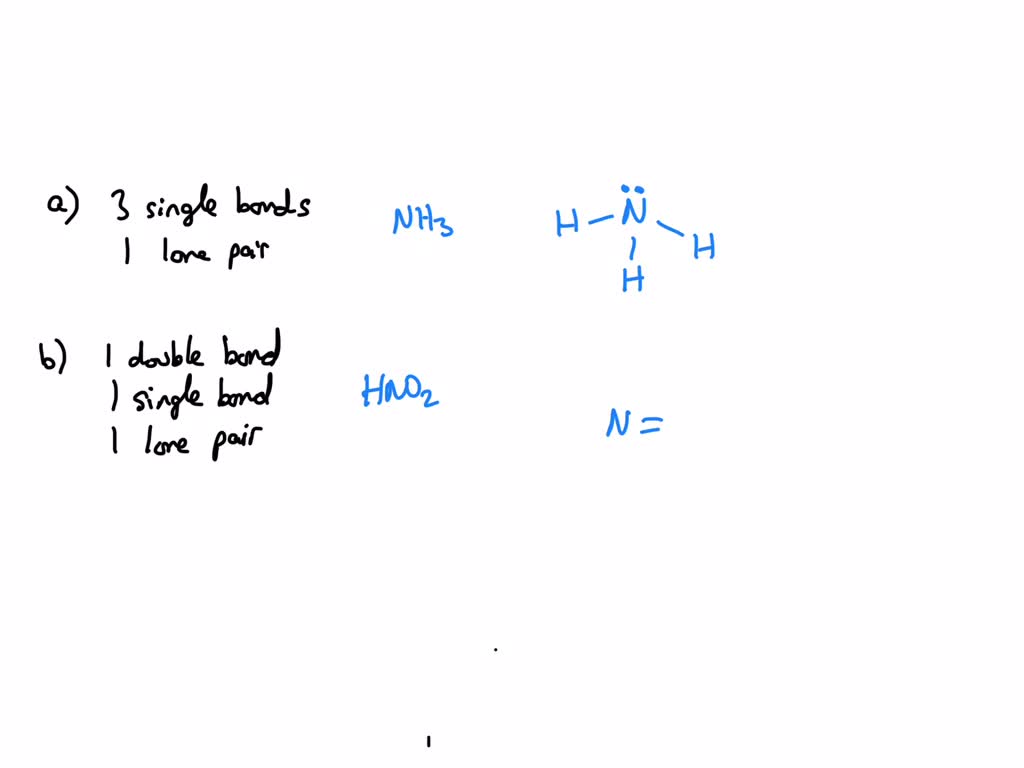 a) 3 single bonds
1 lone pair
NH3
H - N̈ - H
|
H
b) 1 double bond
1 single bond
1 lone pair
HNO2
N =